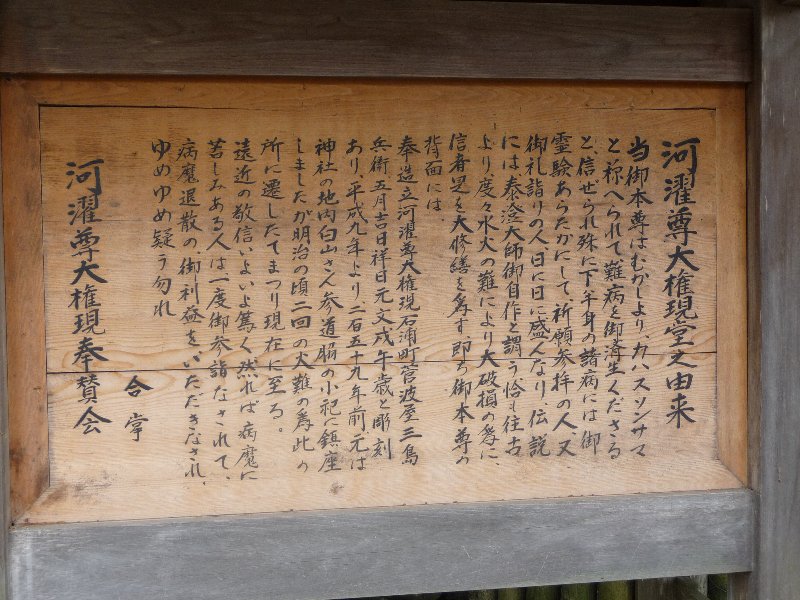 河濯尊大権現堂之由来
当御本尊はむかしより、カハスソンサマ
と称へられて難病を御済生くださる
と、信ぜられ殊に下半身の諸病には御
霊験あらたかにして、祈願参拝の人又
御礼詣りの人日に日に盛んなり、伝説
には泰澄大師御自作と謂う恰も往古
より、度々水火の難により大破損の為に、
信者是を大修繕を為す即ち御本尊の
背面には
奉造立河濯尊大権現石浦町菅波屋三島
兵衛五月吉日祥日元文戌午歳と彫刻
あり、平成九年より二百五十九年前元は
神社の地内白山さん参道脇の小祀に鎮座
しましたが明治の頃二回の火難の為此の
所に遷したてまつり現在に至る。
遠近の敬信いよいよ篤く然れば病魔に
苦しみある人は一度御参詣なされて、
病魔退散の、御利益をいただきなされ、
ゆめゆめ疑う勿れ
合掌
河濯尊大権現奉賛会